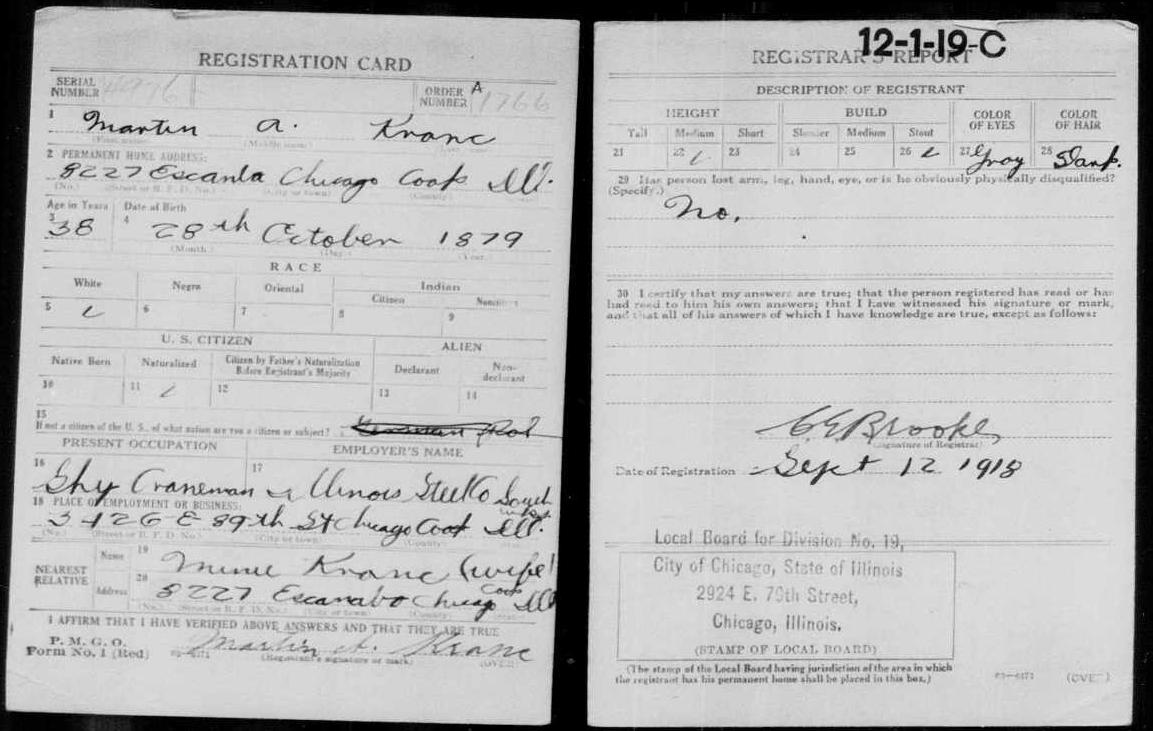 REGISTRATION CARD
SERIAL NUMBER 4976
ORDER NUMBER A 1766
1 Martin A. Kranc
2 PERMANENT HOME ADDRESS:
8227 Escanla Chicago Cook Ill.
(No.) (Street or R. F. D. No.) (City or town) (County)
Age in Years Date of Birth
3 38 4 28th October 1879
(Month.) (Day.) (Year.)
RACE
White Negro Oriental Indian
Citizen Noncitizen
5 6 7 8 9
U. S. CITIZEN ALIEN
Native Born Naturalized Citizen by Father's Naturalization Before Registrant's Majority Declarant Non-declarant
10 11 12 13 14
15
If not a citizen of the U. S., of what nation are you a citizen or subject?
PRESENT OCCUPATION EMPLOYER'S NAME
16 17
Craneman Illinois Steel Co South
18 PLACE OF EMPLOYMENT OR BUSINESS:
3426 E 89th St Chicago Cook Ill.
(No.) (Street or R. F. D. No.) (City or town) (County)
NEAREST RELATIVE Name 19 Minie Kranc (wife)
Address 20 8227 Escanabo Chicago Cook Ill
(No.) (Street or R. F. D. No.) (City or town) (County)
I AFFIRM THAT I HAVE VERIFIED ABOVE ANSWERS AND THAT THEY ARE TRUE
P. M. G. O.
Form No. 1 (Red) 03-6171 Martin A. Kranc
(Registrant's signature or mark) (OVER)
12-1-19-C
REGISTRAR'S REPORT
DESCRIPTION OF REGISTRANT
HEIGHT BUILD COLOR OF EYES COLOR OF HAIR
Tall Medium Short Slender Medium Stout
21 22 23 24 25 26 27 Gray 28 Dark.
29 Has person lost arm, leg, hand, eye, or is he obviously physically disqualified?
(Specify.)
No.
30 I certify that my answers are true; that the person registered has read or has
had read to him his own answers; that I have witnessed his signature or mark,
and that all of his answers of which I have knowledge are true, except as follows:
C E Brooke
(Signature of Registrar)
Date of Registration Sept 12 1918
Local Board for Division No. 19,
City of Chicago, State of Illinois
2924 E. 79th Street,
Chicago, Illinois.
(STAMP OF LOCAL BOARD)
(The stamp of the Local Board having jurisdiction of the area in which
the registrant has his permanent home shall be placed in this box.)
03-6171 (OVER)